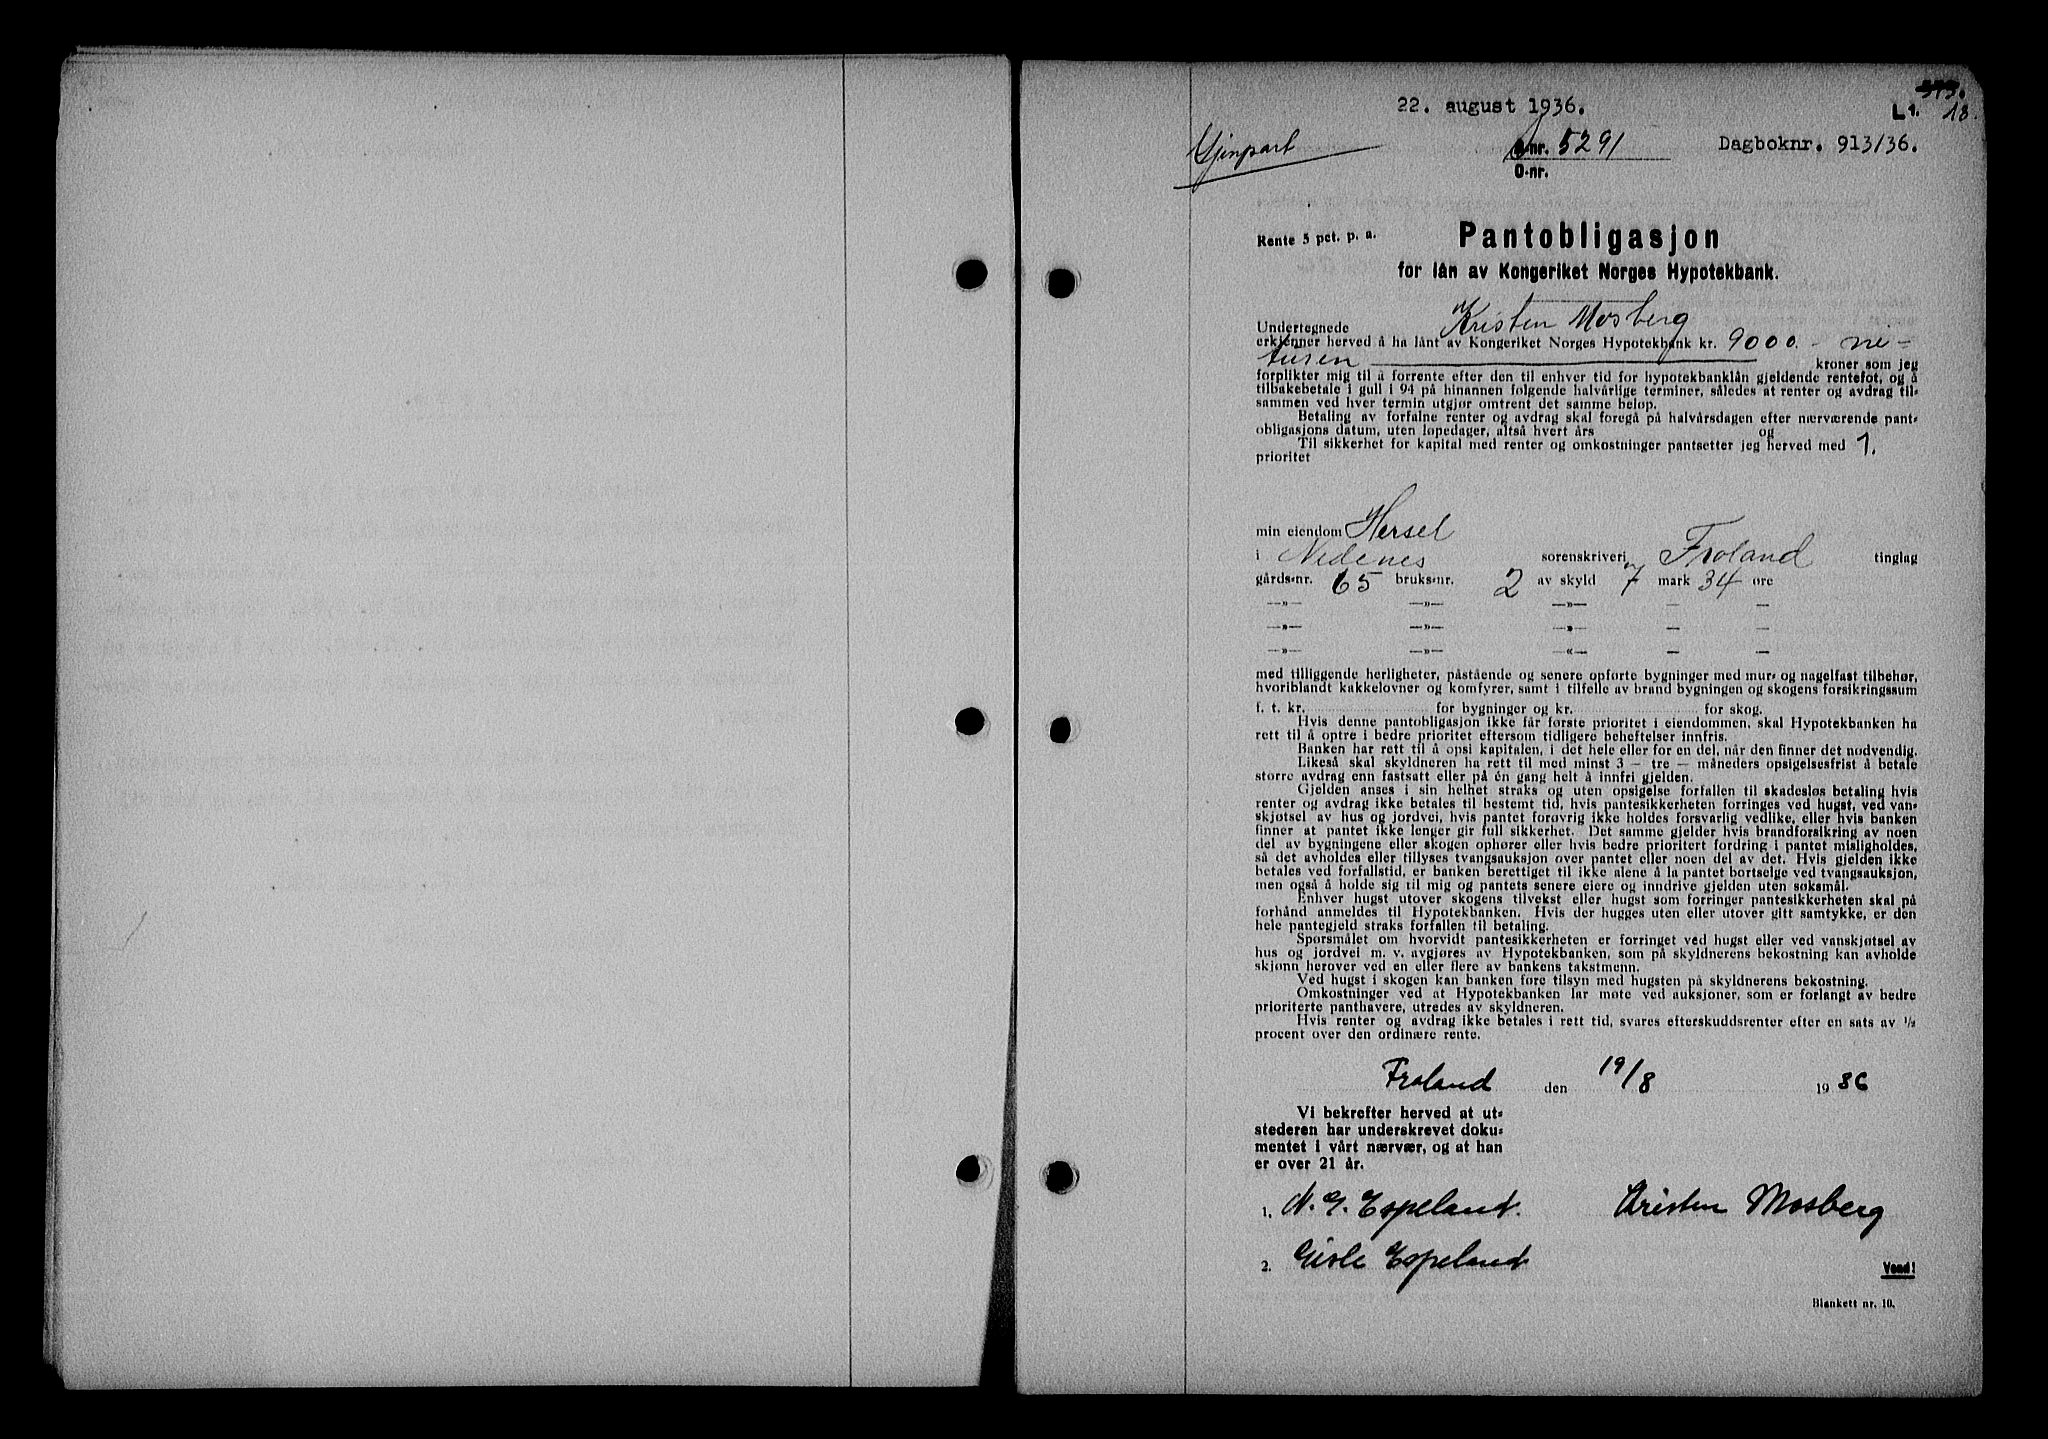 373.
22. august 1936.
L 1. 18.
Gjenpart
nr. 5291
Dagboknr. 913/36.
O.-nr.
Rente 5 pct. p. a.
Pantobligasjon
for lån av Kongeriket Norges Hypotekbank.
Undertegnede Kristen Mosberg
erkjenner herved å ha lånt av Kongeriket Norges Hypotekbank kr. 9000.- ni-
tusen kroner som jeg
forplikter mig til å forrente efter den til enhver tid for hypotekbanklån gjeldende rentefot, og å
tilbakebetale i gull i 94 på hinannen følgende halvårlige terminer, således at renter og avdrag til-
sammen ved hver termin utgjør omtrent det samme beløp.
Betaling av forfalne renter og avdrag skal foregå på halvårsdagen efter nærværende pant-
obligasjons datum, uten løpedager, altså hvert års og
Til sikkerhet for kapital med renter og omkostninger pantsetter jeg herved med 1.
prioritet
min eiendom Hersel
i Nedenes sorenskriveri, Froland tinglag
gårds-nr. 65 bruks-nr. 2 av skyld 7 mark 34 øre
—»— —»— —»— — —
—»— —»— —»— — —
—»— —»— —«— — —
med tilliggende herligheter, påstående og senere opførte bygninger med mur- og nagelfast tilbehør,
hvoriblandt kakkelovner og komfyrer, samt i tilfelle av brand bygningen og skogens forsikringssum
f. t. kr. for bygninger og kr. for skog.
Hvis denne pantobligasjon ikke får første prioritet i eiendommen, skal Hypotekbanken ha
rett til å optre i bedre prioritet eftersom tidligere beheftelser innfris.
Banken har rett til å opsi kapitalen, i det hele eller for en del, når den finner det nødvendig.
Likeså skal skyldneren ha rett til med minst 3 — tre — måneders opsigelsesfrist å betale
større avdrag enn fastsatt eller på én gang helt å innfri gjelden.
Gjelden anses i sin helhet straks og uten opsigelse forfallen til skadesløs betaling hvis
renter og avdrag ikke betales til bestemt tid, hvis pantesikkerheten forringes ved hugst, ved van-
skjøtsel av hus og jordvei, hvis pantet forøvrig ikke holdes forsvarlig vedlike, eller hvis banken
finner at pantet ikke lenger gir full sikkerhet. Det samme gjelder hvis brandforsikring av noen
del av bygningene eller skogen ophører eller hvis bedre prioritert fordring i pantet misligholdes,
så det avholdes eller tillyses tvangsauksjon over pantet eller noen del av det. Hvis gjelden ikke
betales ved forfallstid, er banken berettiget til ikke alene å la pantet bortselge ved tvangsauksjon,
men også å holde sig til mig og pantets senere eiere og inndrive gjelden uten søksmål.
Enhver hugst utover skogens tilvekst eller hugst som forringer pantesikkerheten skal på
forhånd anmeldes til Hypotekbanken. Hvis der hugges uten eller utover gitt samtykke, er den
hele pantegjeld straks forfallen til betaling.
Spørsmålet om hvorvidt pantesikkerheten er forringet ved hugst eller ved vanskjøtsel av
hus og jordvei m. v. avgjøres av Hypotekbanken, som på skyldnerens bekostning kan avholde
skjønn herover ved en eller flere av bankens takstmenn.
Ved hugst i skogen kan banken føre tilsyn med hugsten på skyldnerens bekostning.
Omkostninger ved at Hypotekbanken lar møte ved auksjoner, som er forlangt av bedre
prioriterte panthavere, utredes av skyldneren.
Hvis renter og avdrag ikke betales i rett tid, svares efterskuddsrenter efter en sats av 1/2
procent over den ordinære rente.
Froland den 19/8 1936
Vi bekrefter herved at ut-
stederen har underskrevet doku-
mentet i vårt nærvær, og at han
er over 21 år.
1. N. G. Espeland. Kristen Mosberg
2. Gisle Espeland
Vend!
Blankett nr. 10.